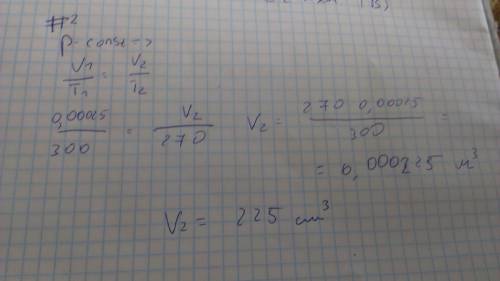 #2
p-const ->
V1/T1 = V2/T2
0,00025/300 = V2/270 V2 = 270 0,00025/300 =
= 0,000225 м³
V2 = 225 cm³